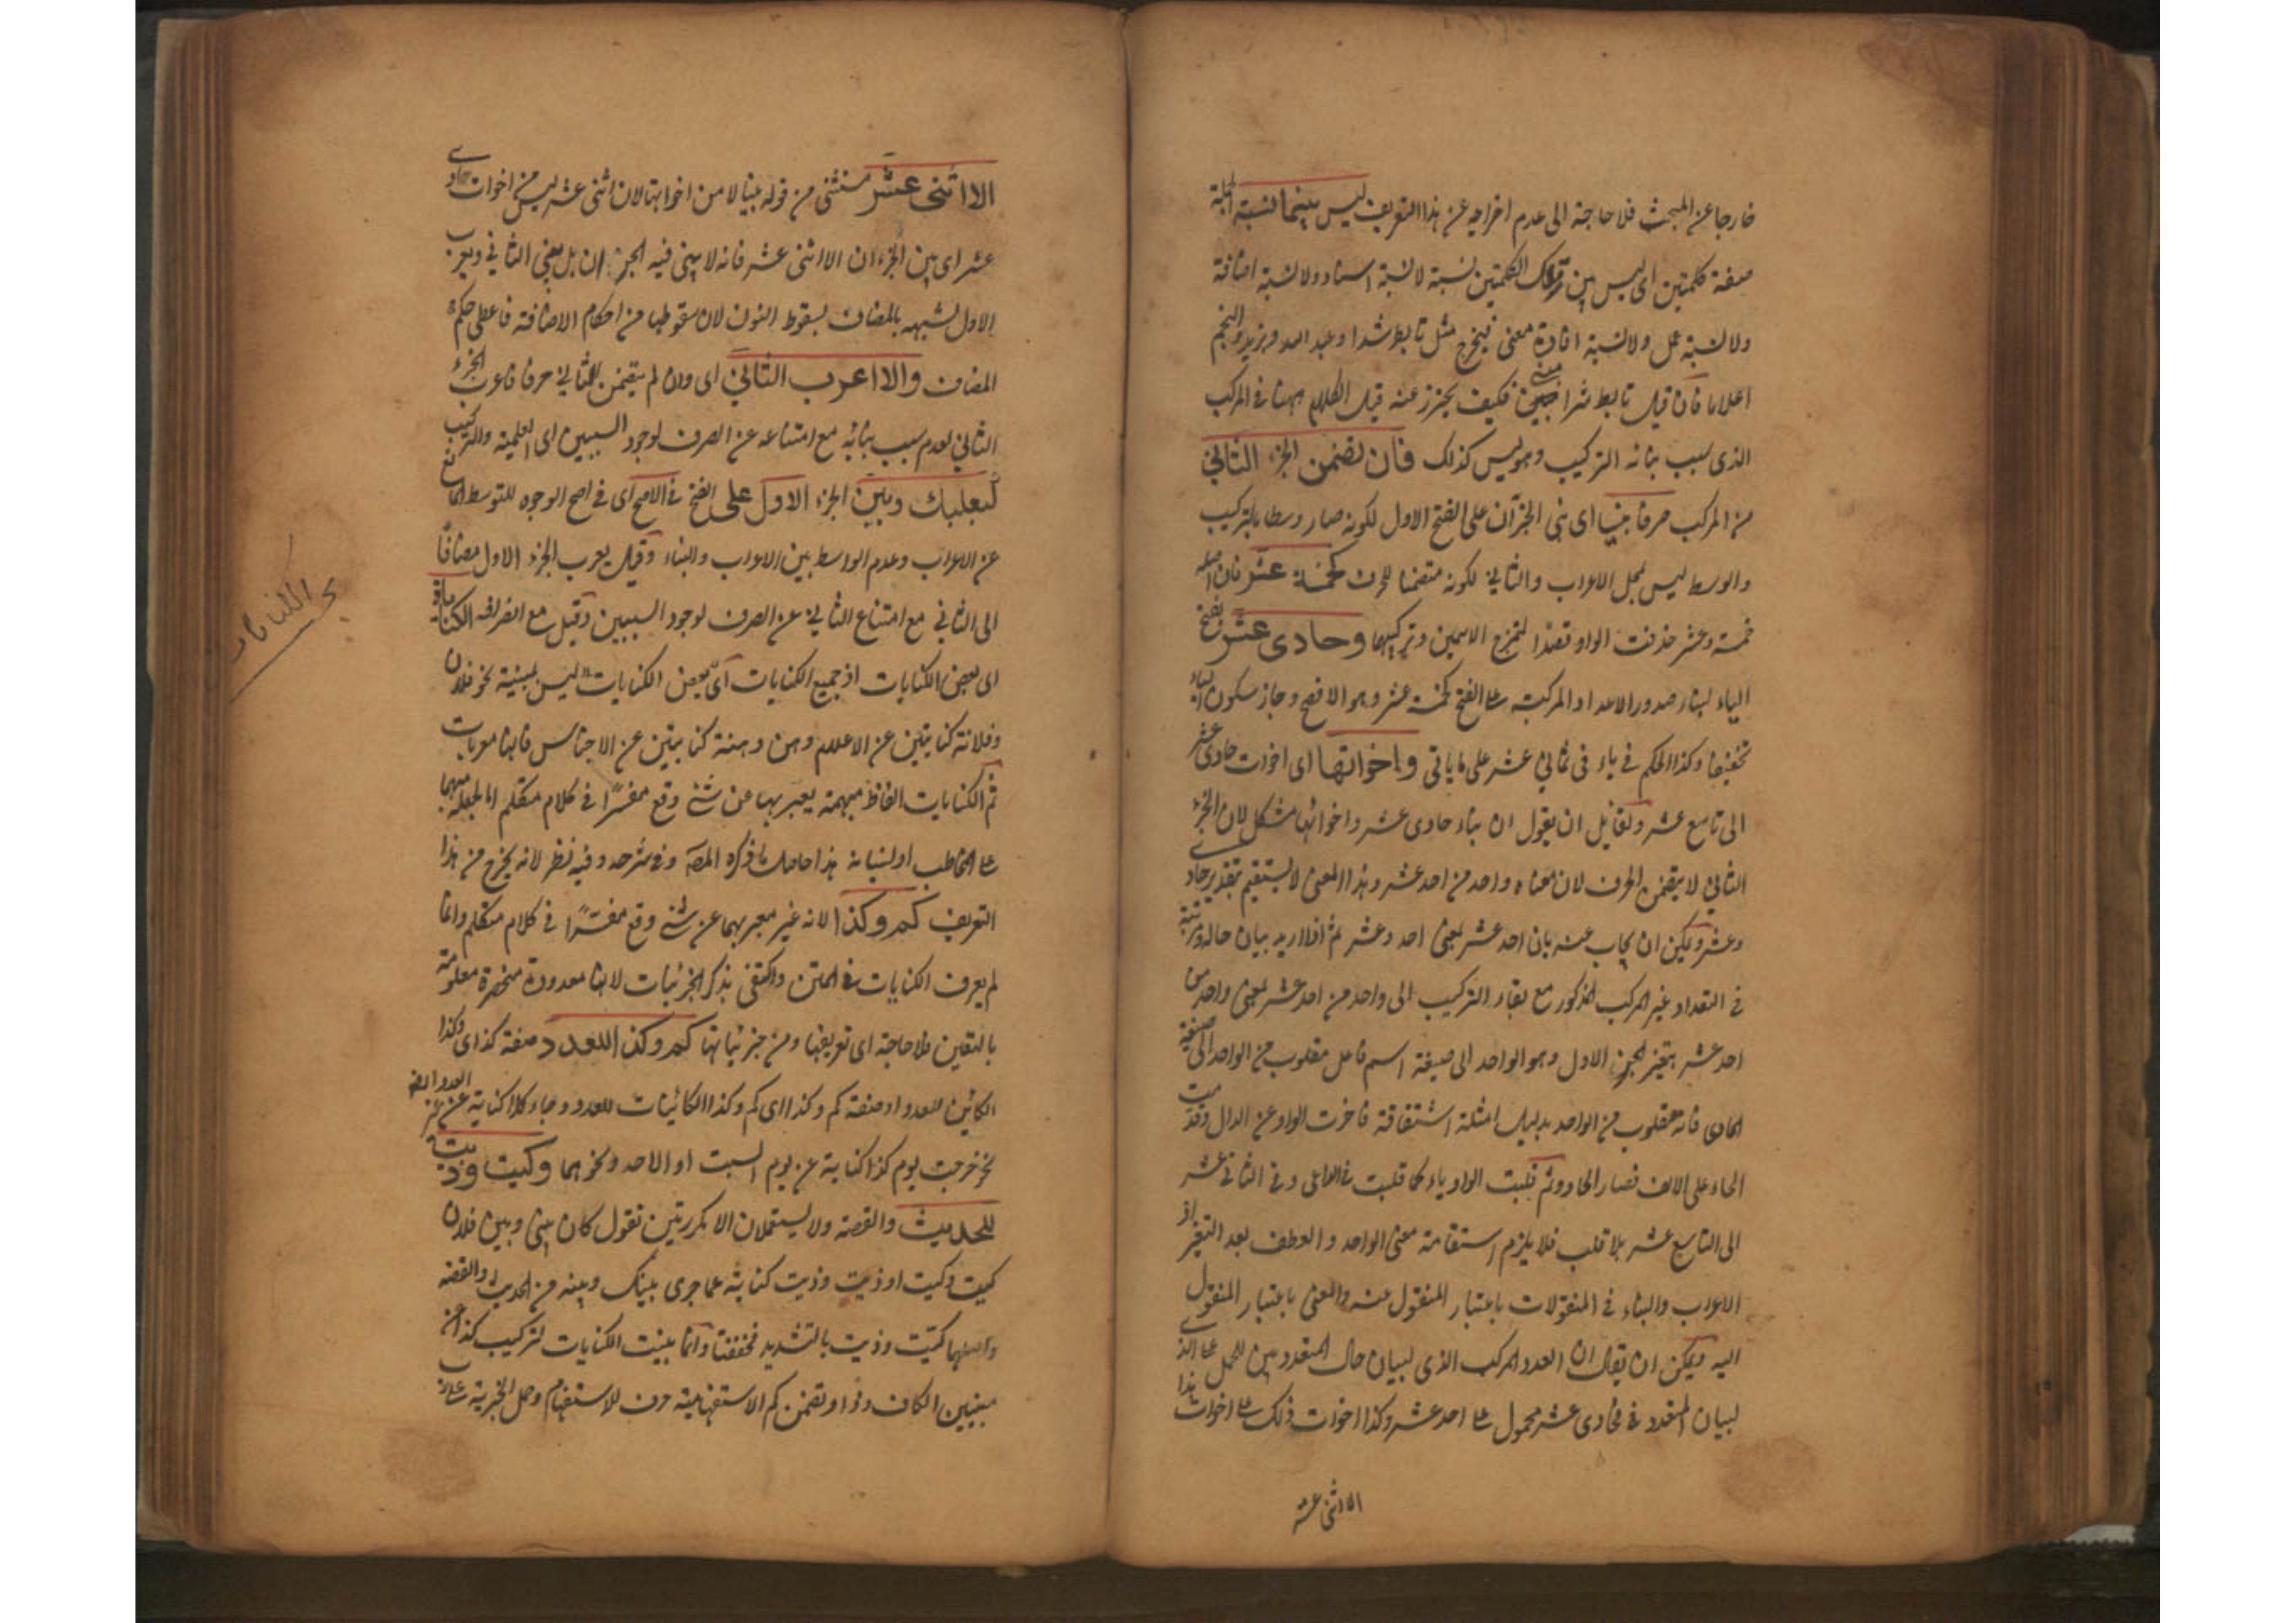 خارجا عن المبحث فلا حاجة الى عدم اخراجه عن هذا التعريف ليس بينهما نسبة الجملة
صفة كلمتين اى ليس بين تينك الكلمتين نسبة لا نسبة اسناد ولا نسبة اضافة
ولا نسبة عمل ولا نسبة افادة معنى فيخرج مثل تابط شرا وعبد الله وبزيد والنجم
اعلاما فان قيل تابط شرا مبنى فكيف يحترز عنه قيل الكلام ههنا فى المركب
الذى سبب بنائه التركيب وهو ليس كذلك فان تضمن الجزء الثانى
من المركب حرفا بنيا اى بنى الجزآن على الفتح الاول لكونه صار وسطا بالتركيب
والوسط ليس محل الاعراب والثانى لكونه متضمنا للحرف كخمسة عشر فان اصله
خمسة وعشر حذفت الواو قصدا لتمزج الاسمين وتركيبهما وحادى عشر بفتح
الياء لبناء صدور الاعداد المركبة على الفتح كخمسة عشر وهو الافصح وجاز سكون الياء
تخفيفا وكذا الحكم فى ياء فى ثمانى عشر على ما ياتى واخواتها اى اخوات حادى عشر
الى تاسع عشر ولقائل ان يقول ان بناء حادى عشر واخواتها مشكل لان الجزء
الثانى لا يتضمن الحرف لان معناه واحد من احد عشر وهذا المعنى لا يستقيم بتقدير حادى
وعشر ويمكن ان يجاب عنه بان احد عشر بمعنى احد وعشر ثم اذا اريد بيان حاله ومرتبته
فى التعداد غير المركب المذكور مع بقاء التركيب الى واحد من احد عشر بمعنى واحد من
احد عشر بتغير الجزء الاول وهو الواحد الى صيغة اسم فاعل مقلوب من الواحد الى صيغة
الحادى فانه مقلوب من الواحد بدليل امثلة اشتقاقه فاخرت الواو عن الدال وقدمت
الحاء على الالف فصار الحادو ثم قلبت الواو ياء كما قلبت فى الداعى وفى الثانى عشر
الى التاسع عشر بلا قلب فلا يلزم استقامة معنى الواحد والعطف بعد التغير اذ
الاعراب والبناء فى المنقولات باعتبار المنقول عنه والمعنى باعتبار المنقول
اليه ويمكن ان يقال ان العدد المركب الذى لبيان حال المتعدد بين للحمل على الذى
لبيان المتعدد فحادى عشر محمول على احد عشر وكذا اخوات ذلك على اخوات هذا
الا اثنى عشر
الا اثنى عشر مستثنى من قوله بنيا لا من اخواتها لان اثنى عشر ليس من اخوات حادى
عشر اى بين الجزءان الا اثنى عشر فانه لا يبنى فيه الجزءان بل يبنى الثانى ويعرب
الاول لشبهه بالمضاف بسقوط النون لان سقوطها من احكام الاضافة فاعطى حكم
المضاف والا اعرب الثانى اى وان لم يتضمن الثانى حرفا فاعرب الجزء
الثانى لعدم سبب بنائه مع امتناعه عن الصرف لوجود السببين اى العلمية والتركيب
كبعلبك وبنى الجزء الاول على الفتح فى الاصح اى فى اصح الوجوه للتوسط المانع
عن الاعراب وعدم الواسط بين الاعراب والبناء وقيل يعرب الجزء الاول مضافا
الى الثانى مع امتناع الثانى عن الصرف لوجود السببين وقيل مع انصرافه الكنايات
اى بعض الكنايات اذ جميع الكنايات اى بعض الكنايات ليس بمبنية نحو فلان
وفلانة كنايتين عن الاعلام وهن وهنة كنايتين عن الاجناس فانها معربات
ثم الكنايات الفاظ مبهمة يعبر بها عن شئ وقع مفسرا فى كلام متكلم اما لجعله مبهما
على المخاطب او لنسيانه هذا حاصل ما ذكره المص وفى شرحه وفيه نظر لانه يخرج من هذا
التعريف كم وكذا لانه غير معبر بهما عن شئ وقع مفسرا فى كلام متكلم وانما
لم يعرف الكنايات فى المتن واكتفى بذكر الجزئيات لانها معدودة منحصرة معلومة
باليقين فلا حاجة اى تعريفها ومن جزئياتها كم وكذا للعدد صفة كذا اى وكذا
الكائن للعدد او صفة كم وكذا اى كم وكذا الكائنات للعدد وجاء كذا كناية عن غير العدد ايضا
نحو خرجت يوم كذا كناية عن يوم السبت او الاحد ونحوهما وكيت وذيت
للحديث والقصة ولا يستعملان الا مكررتين تقول كان بينى وبين فلان
كيت وكيت او ذيت وذيت كناية عما جرى بينك وبينه من الحديث والقصة
واصلهما كيّت وذيت بالتشديد فخففتا وانما بنيت الكنايات لتركيب كذا عن
مبنيين الكاف وذا وتضمن كم الاستفهامية حرف الاستفهام وحمل الخبرية
الكنايات